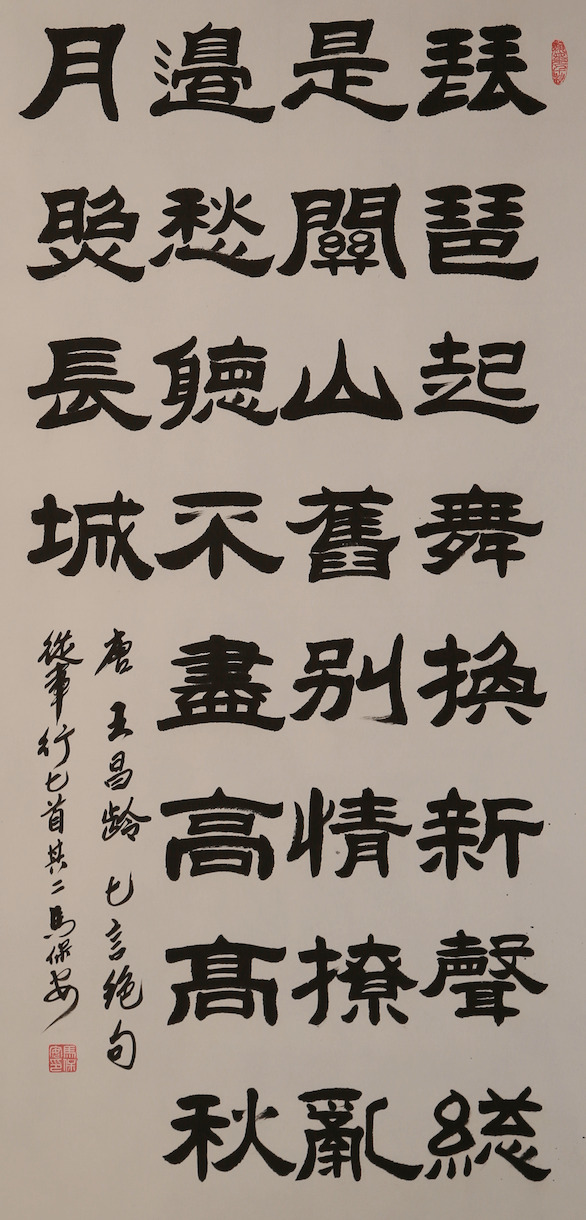 琵琶起舞換新聲総
是關山舊别情撩亂
邉愁聽不盡高髙秋
月照長城
唐王昌龄七言绝句
從軍行七首其二馬保安